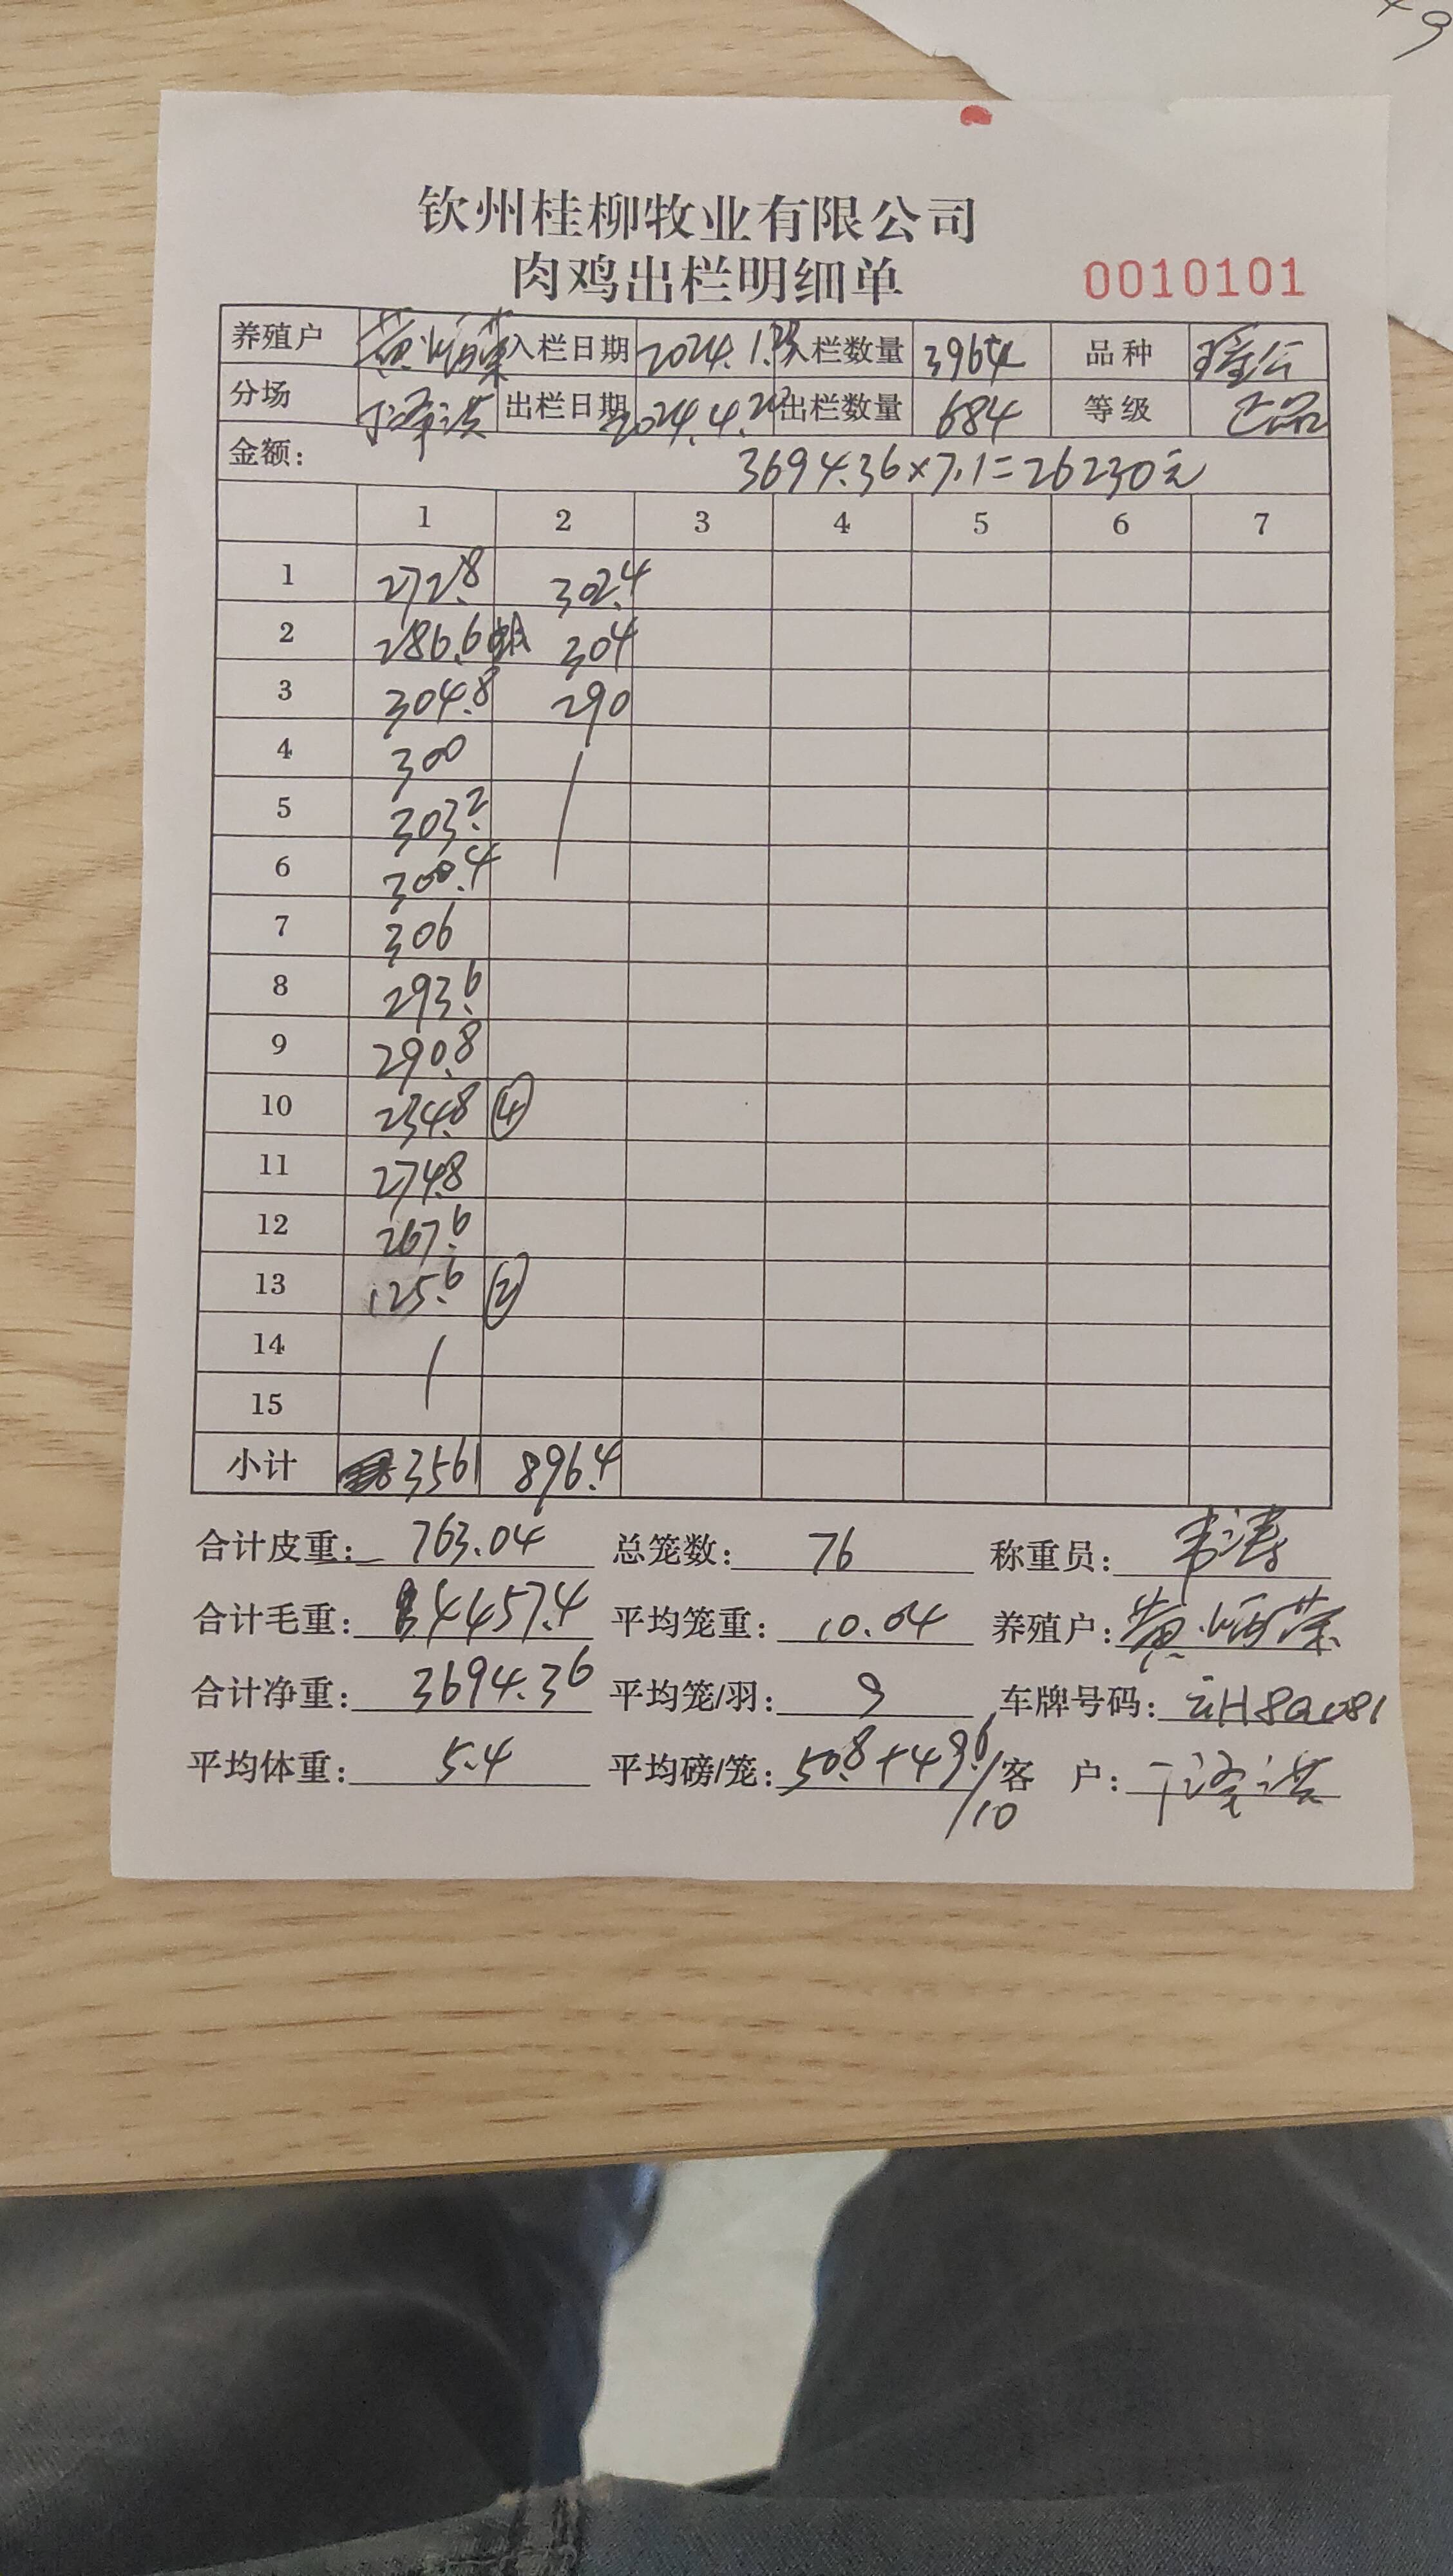 钦州桂柳牧业有限公司
肉鸡出栏明细单 0010101
养殖户 黄炳荣 入栏日期 2024.1. 入栏数量 3964 品种
分场 出栏日期 2024.4. 出栏数量 684 等级 正品
金额: 3694.36×7.1=26230元
1 2 3 4 5 6 7
1 272.8 302.4
2 286.6 304
3 304.8 290
4 300
5 303.2
6 300.4
7 306
8 293.6
9 290.8
10 234.8 ④
11 274.8
12 267.6
13 125.6 ②
14
15
小计 3561 896.4
合计皮重: 763.04 总笼数: 76 称重员: 韦涛
合计毛重: 4457.4 平均笼重: 10.04 养殖户: 黄炳荣
合计净重: 3694.36 平均笼/羽: 9 车牌号码:
平均体重: 5.4 平均磅/笼: 50.8+49.6/10 客 户: